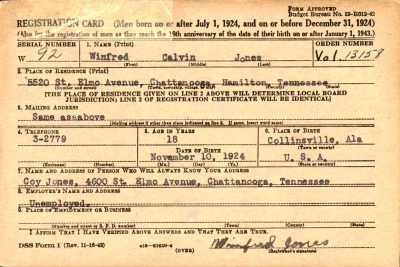 FORM APPROVED
Budget Bureau No. 33-R012-42
REGISTRATION CARD (Men born on or after July 1, 1924, and on or before December 31, 1924)
(Also for the registration of men as they reach the 18th anniversary of the date of their birth on or after January 1, 1943.)
SERIAL NUMBER 1. NAME (Print) ORDER NUMBER
W 92 Winfred Calvin Jones Vol. 13158
(First) (Middle) (Last)
2. PLACE OF RESIDENCE (Print)
5520 St. Elmo Avenue, Chattanooga, Hamilton, Tennessee
(Number and street) (Town, township, village, or city) (County) (State)
[THE PLACE OF RESIDENCE GIVEN ON LINE 2 ABOVE WILL DETERMINE LOCAL BOARD
JURISDICTION; LINE 2 OF REGISTRATION CERTIFICATE WILL BE IDENTICAL]
3. MAILING ADDRESS
Same as above
[Mailing address if other than place indicated on line 2. If same, insert word same]
4. TELEPHONE 5. AGE IN YEARS 6. PLACE OF BIRTH
3-2779 18 Collinsville, Ala
DATE OF BIRTH (Town or county)
November 10, 1924 U. S. A.
(Exchange) (Number) (Mo.) (Day) (Yr.) (State or country)
7. NAME AND ADDRESS OF PERSON WHO WILL ALWAYS KNOW YOUR ADDRESS
Coy Jones, 4600 St. Elmo Avenue, Chattanooga, Tennessee
8. EMPLOYER'S NAME AND ADDRESS
Unemployed.
9. PLACE OF EMPLOYMENT OR BUSINESS
(Number and street or R. F. D. number) (Town) (County) (State)
I AFFIRM THAT I HAVE VERIFIED ABOVE ANSWERS AND THAT THEY ARE TRUE.
DSS Form 1 (Rev. 11-16-42) (OVER) Winfred Jones
(Registrant's signature)